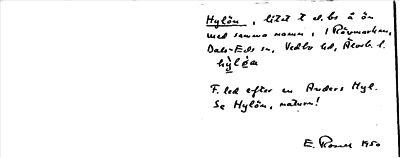 Hylön, litet t d. bs å ön
med samma namn, i Rävmarken,
Dals-Eds sn, Vedbo hd, Älvsb. l.
hỳlớa
F. led efter en Anders Hyl.
Se Hylön, naturn!
E. 1950